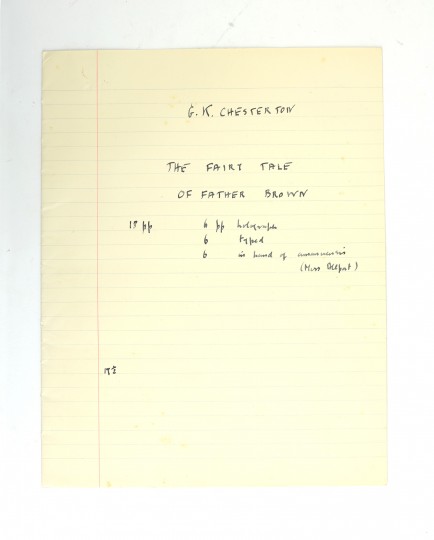 G. K. CHESTERTON
THE FAIRY TALE
OF FATHER BROWN
18 pp 6 pp holograph
6 typed
6 in hand of amanuensis
(Miss